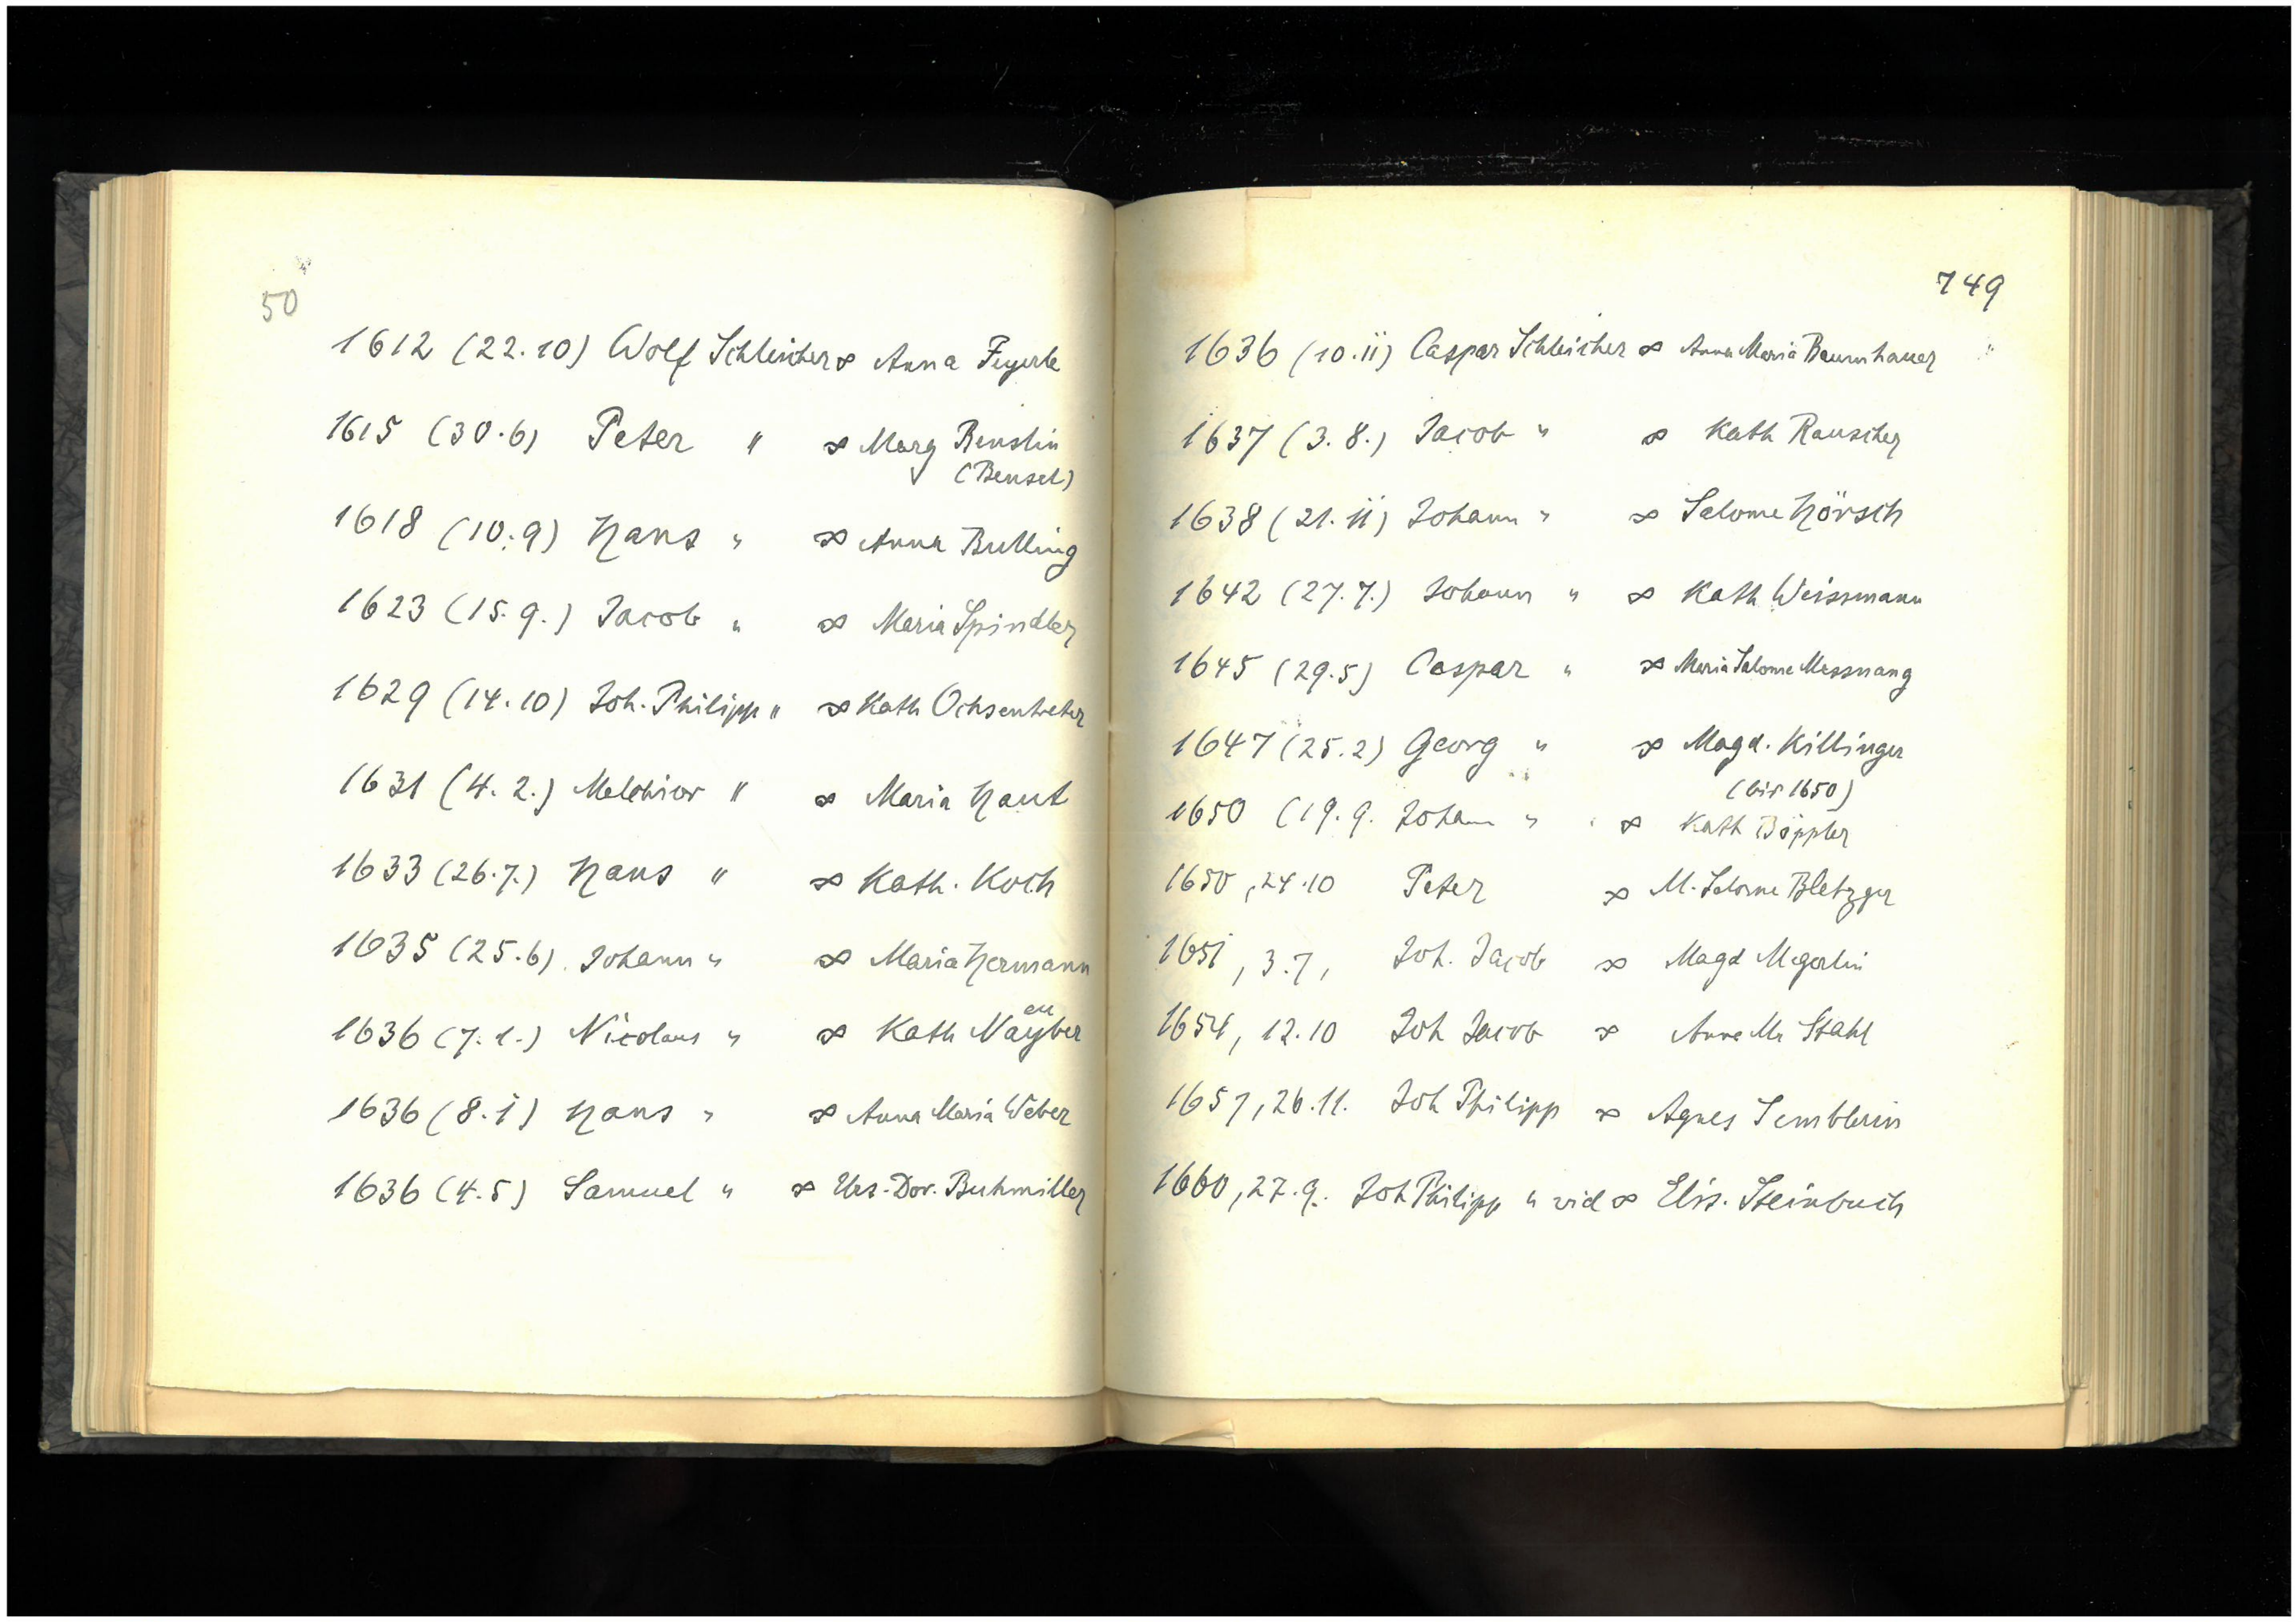 50
1612 (22.10) Wolf Schleicher ∞ Anna Feyerle
1615 (30.6) Peter " ∞ Marg Benslin
(Bensel)
1618 (10.9) Hans " ∞ Anna Bulling
1623 (15.9.) Jacob " ∞ Maria Spindler
1629 (14.10) Joh. Philipp " ∞ Kath Ochsentreter
1631 (4.2.) Melchior " ∞ Maria Haut
1633 (26.7.) Hans " ∞ Kath. Koch
1635 (25.6) Johann " ∞ Maria Hermann
eu
1636 (7.1.) Nicolaus " ∞ Kath Nayber
1636 (8.1) Hans " ∞ Anna Maria Weber
1636 (4.5) Samuel " ∞ Urs. Dor. Buhmiller
749
1636 (10.11) Caspar Schleicher ∞ Anna Maria Baumhauer
1637 (3.8.) Jacob " ∞ Kath Rauscher
1638 (21.11) Johann " ∞ Salome Hörsch
1642 (27.7.) Johann " ∞ Kath Weissmann
1645 (29.5) Caspar " ∞ Maria Salome Messnang
1647 (25.2) Georg " ∞ Magd. Killinger
(bis 1650)
1650 (19.9. Johann " ∞ Kath Böppler
1650, 24.10 Peter ∞ M. Salome Bletzger
1651, 3.7, Joh. Jacob ∞ Magd Megerlin
1654, 12.10 Joh Jacob ∞ Anna Ma Stahl
1657, 26.11. Joh Philipp ∞ Agnes Semblerin
1660, 27.9. Joh Philipp " vid ∞ Elis. Steinbuch